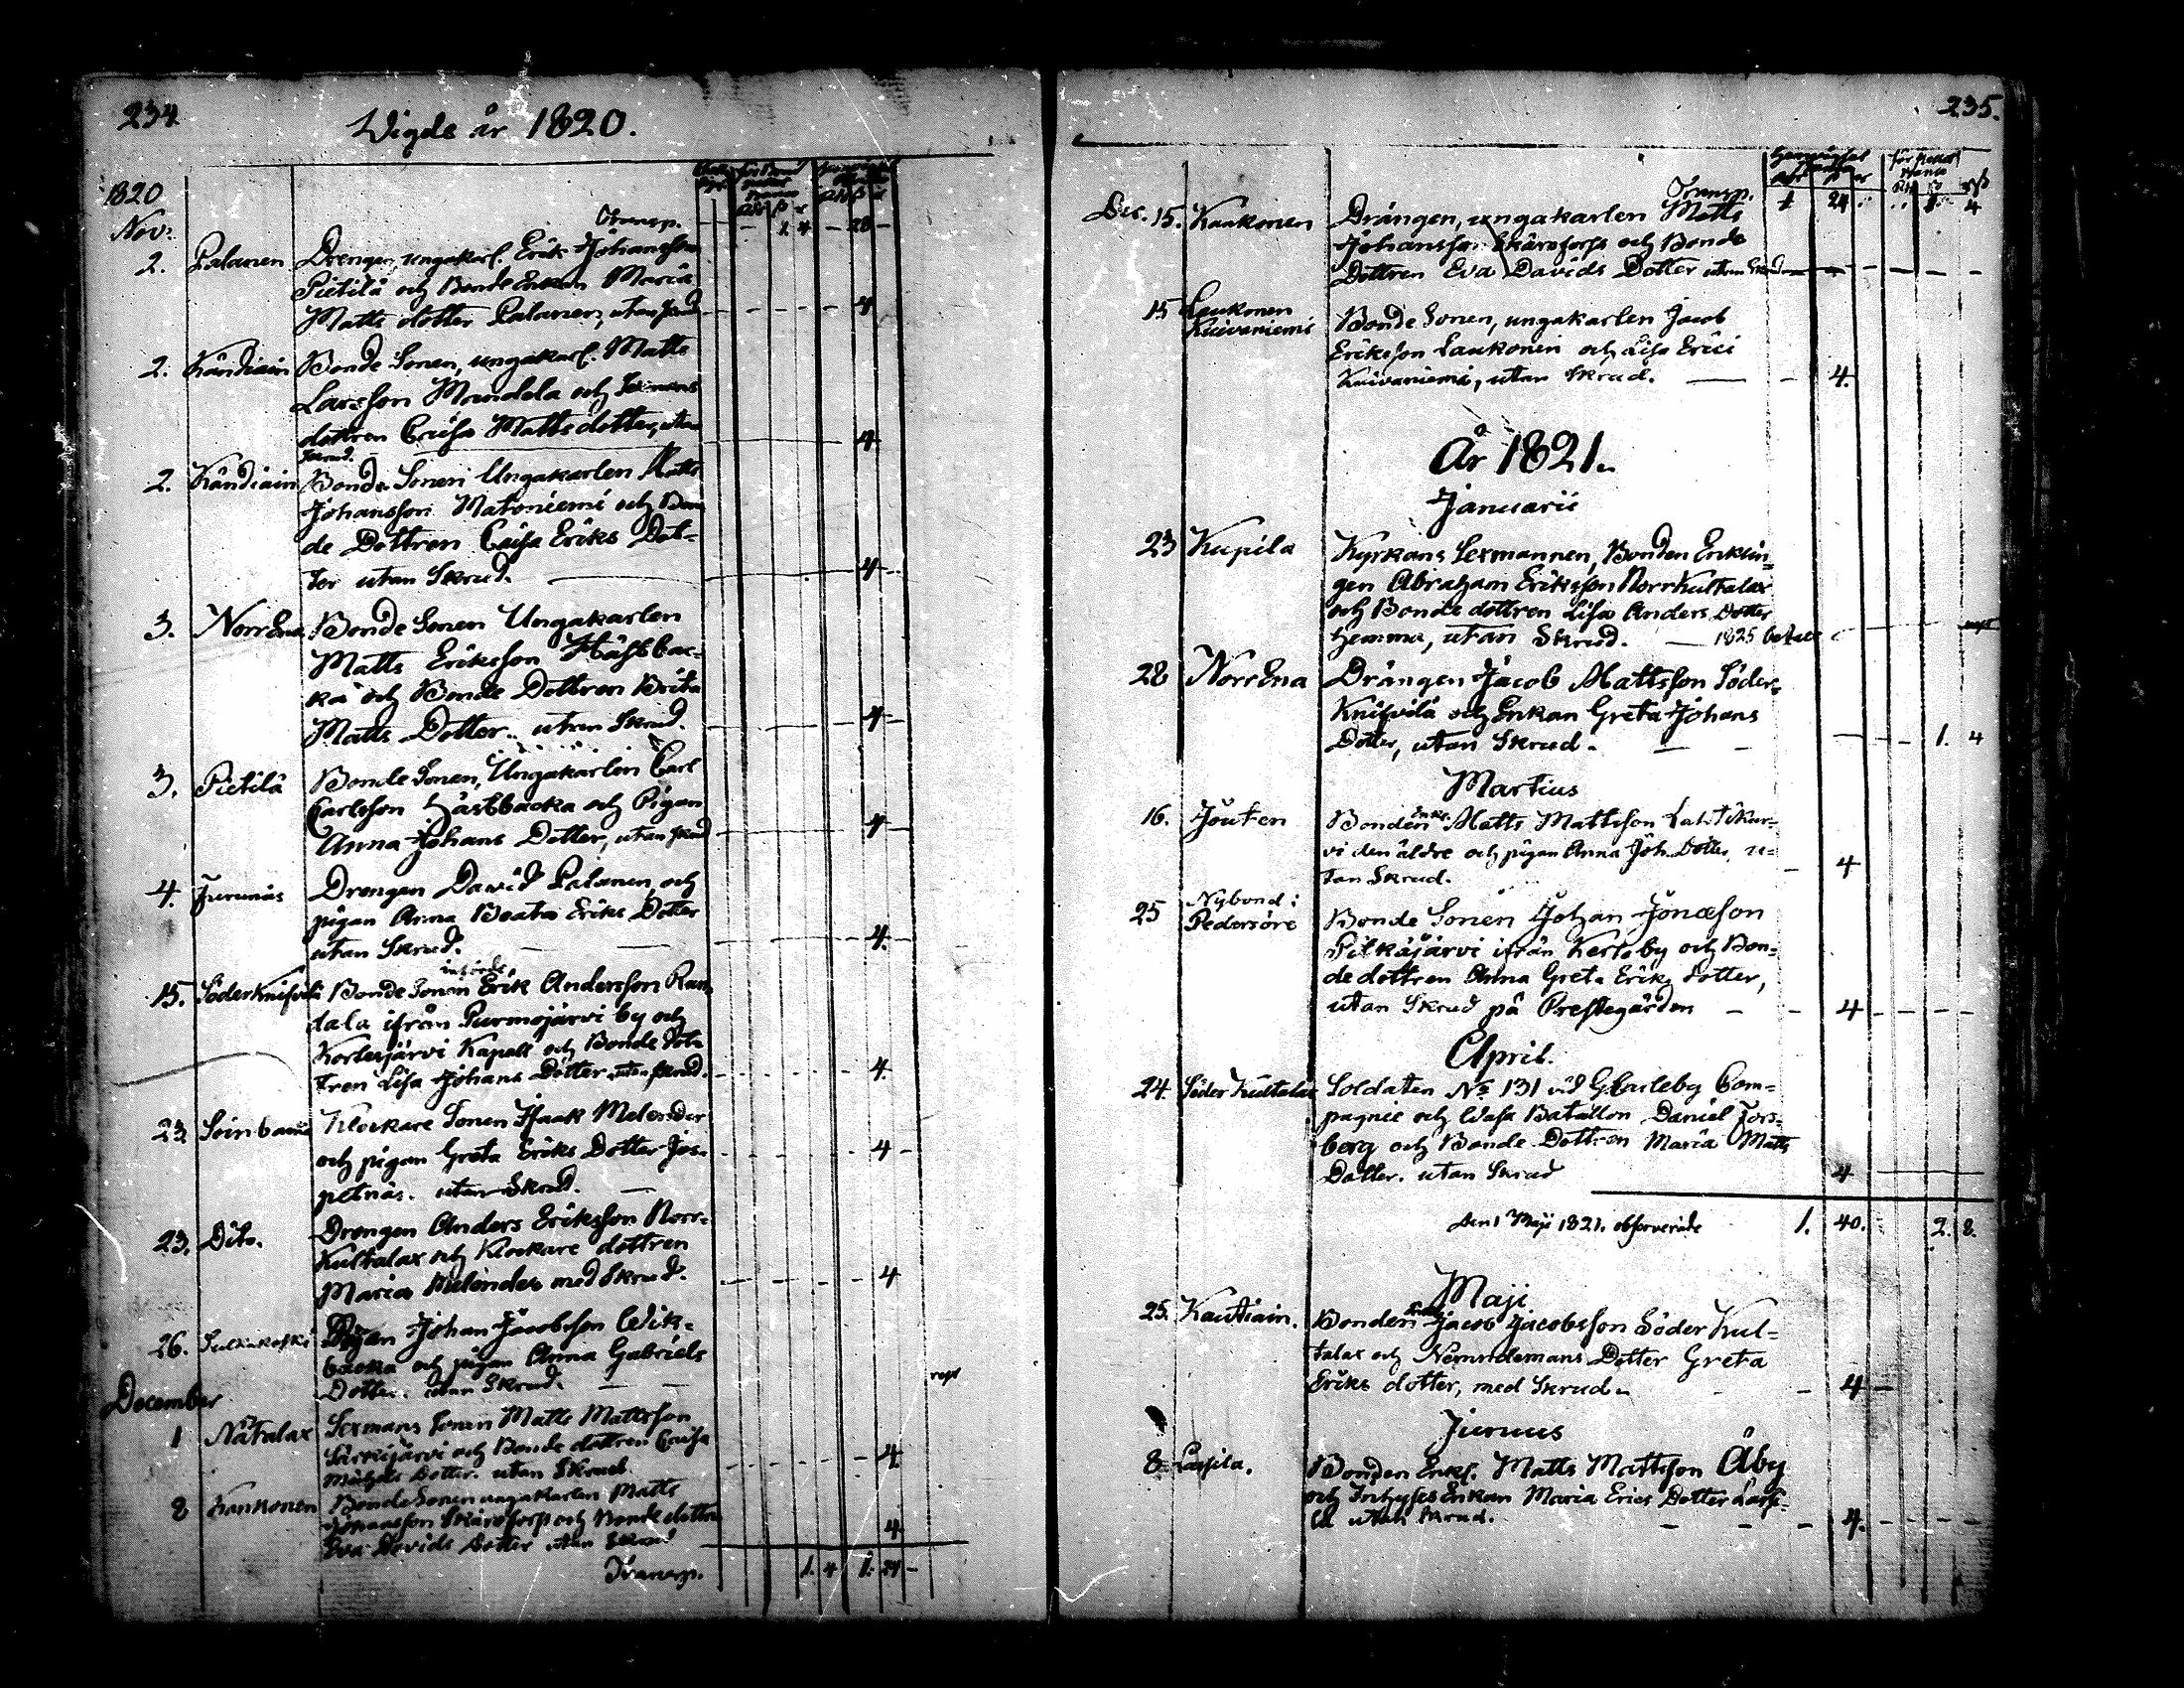 234.
Wigde år 1820.
1820
Nov:
Transp. - - 1 4 - 28 -
2. Palanen Drengen, ungakarl. Erik Johansson
Pietilä och Bonde Enkan Maria
Matts dotter Palanen, utan skrud 4
2. Kåndiain Bonde Sonen, ungakarl. Matts
Larsson Mandela och Sexmans
dottren Caisa Matts dotter, utan 4
skrud.
2. Kåndiain Bonde Sonen Ungakarlen Matts
Johansson Matoniemi och Bon
de Dottren Caisa Eriks Dot-
ter utan Skrud. 4
3. NorrEna Bonde Sonen Ungakarlen
Matts Eriksson Hästbac-
ka och Bonde Dottren Brita
Matts Dotter.. utan Skrud. 4
3. Pietilä Bonde Sonen, Ungakarlen Carl
Carlsson Hästbacka och Pigan
Anna Johans Dotter, utan skrud 4
4. Jurunäs Drengen David Palanen, och
pigan Anna Beata Eriks Dotter
utan Skrud. 4.
15. Söderknifvilä Bonde Sonen Erik Andersson Ran-
dala ifrån Purmojärvi by och
Kortesjärvi Kapell och Bonde Dot-
tren Lisa Johans Dotter, utan skrud. 4.
23 Klockare Sonen Isaak Melender
och pigan Greta Eriks Dotter Jos- 4
petnäs. utan Skrud.
23. Dito. Drengen Anders Eriksson Norr-
Kultalax och Klockare dottren
Maria Melender med Skrud. 4
26. Johan Jacobsson Wik-
backa och pigan Anna Gabriels
Dotter. utan Skrud. rest
December
1 Nätalax Sexmans Sonen Matts Mattsson
Särkijärvi och Bonde dottren Caisa 4.
Dotter. utan Skrud.
8 Kankonen Bonde Sonen ungakarlen Matts
Johansson Skärsforss och Bonde dottren
Eva Davids Dotter utan Skrud 4
Transp. 1. 4 1. 24 -
235.
Transp. 1 24 1. 4
Dec. 15. Kaakonen Drängen, ungakarlen Matts
Johansson Skärsforss och Bonde
Dottren Eva Davids Dotter utan Skrud
15 Laukonen
Kuivaniemi Bonde Sonen, ungakarlen Jacob
Eriksson Laukonen och Lisa Erici
Kuivaniemi, utan Skrud. 4.
År 1821.
Januarii
23 Kupila Kyrkans Sexmannen, Bonden Enklin-
gen Abraham Eriksson NorrKultalax
och Bonde dottren Lisa Anders Dotter
hemma, utan Skrud. 1825 betalt rest
28 NorrEna Drängen Jacob Mattsson Söder-
Knifvilä och Enkan Greta Johans
Dotter, utan Skrud. 1. 4
Martius
16. Jouten Bonden Enkl. Matts Mattsson Lahtikar-
vi den äldre och pigan Anna Joh. Dotter, u-
tan Skrud. 4
25 Nybond i
Pedersöre Bonde Sonen Johan Jonasson
Pitkäjärvi ifrån Kerteby och Bon-
de dottren Anna Greta Eriks dotter,
utan Skrud på Prestegården 4
April.
24. Söder Kultalax Soldaten No 131 vid GCarleby Com-
pagnie och Wasa Bataillon Daniel Fors-
berg och Bonde Dottren Maria Matts
Dotter. utan Skrud 4
den 1 Maji 1821. observerade 1. 40. 2. 8.
Maji
25. Kautiain. Bonden Jacob Jacobsson Söder Kul-
talax och Nemndemans Dotter Greta
Eriks dotter, med Skrud. 4
Junius
8. Lassila. Bonden Enkl. Matts Mattsson Åby
och Inhyses Enkan Maria Erics Dotter Lassi-
la utan skrud. 4.